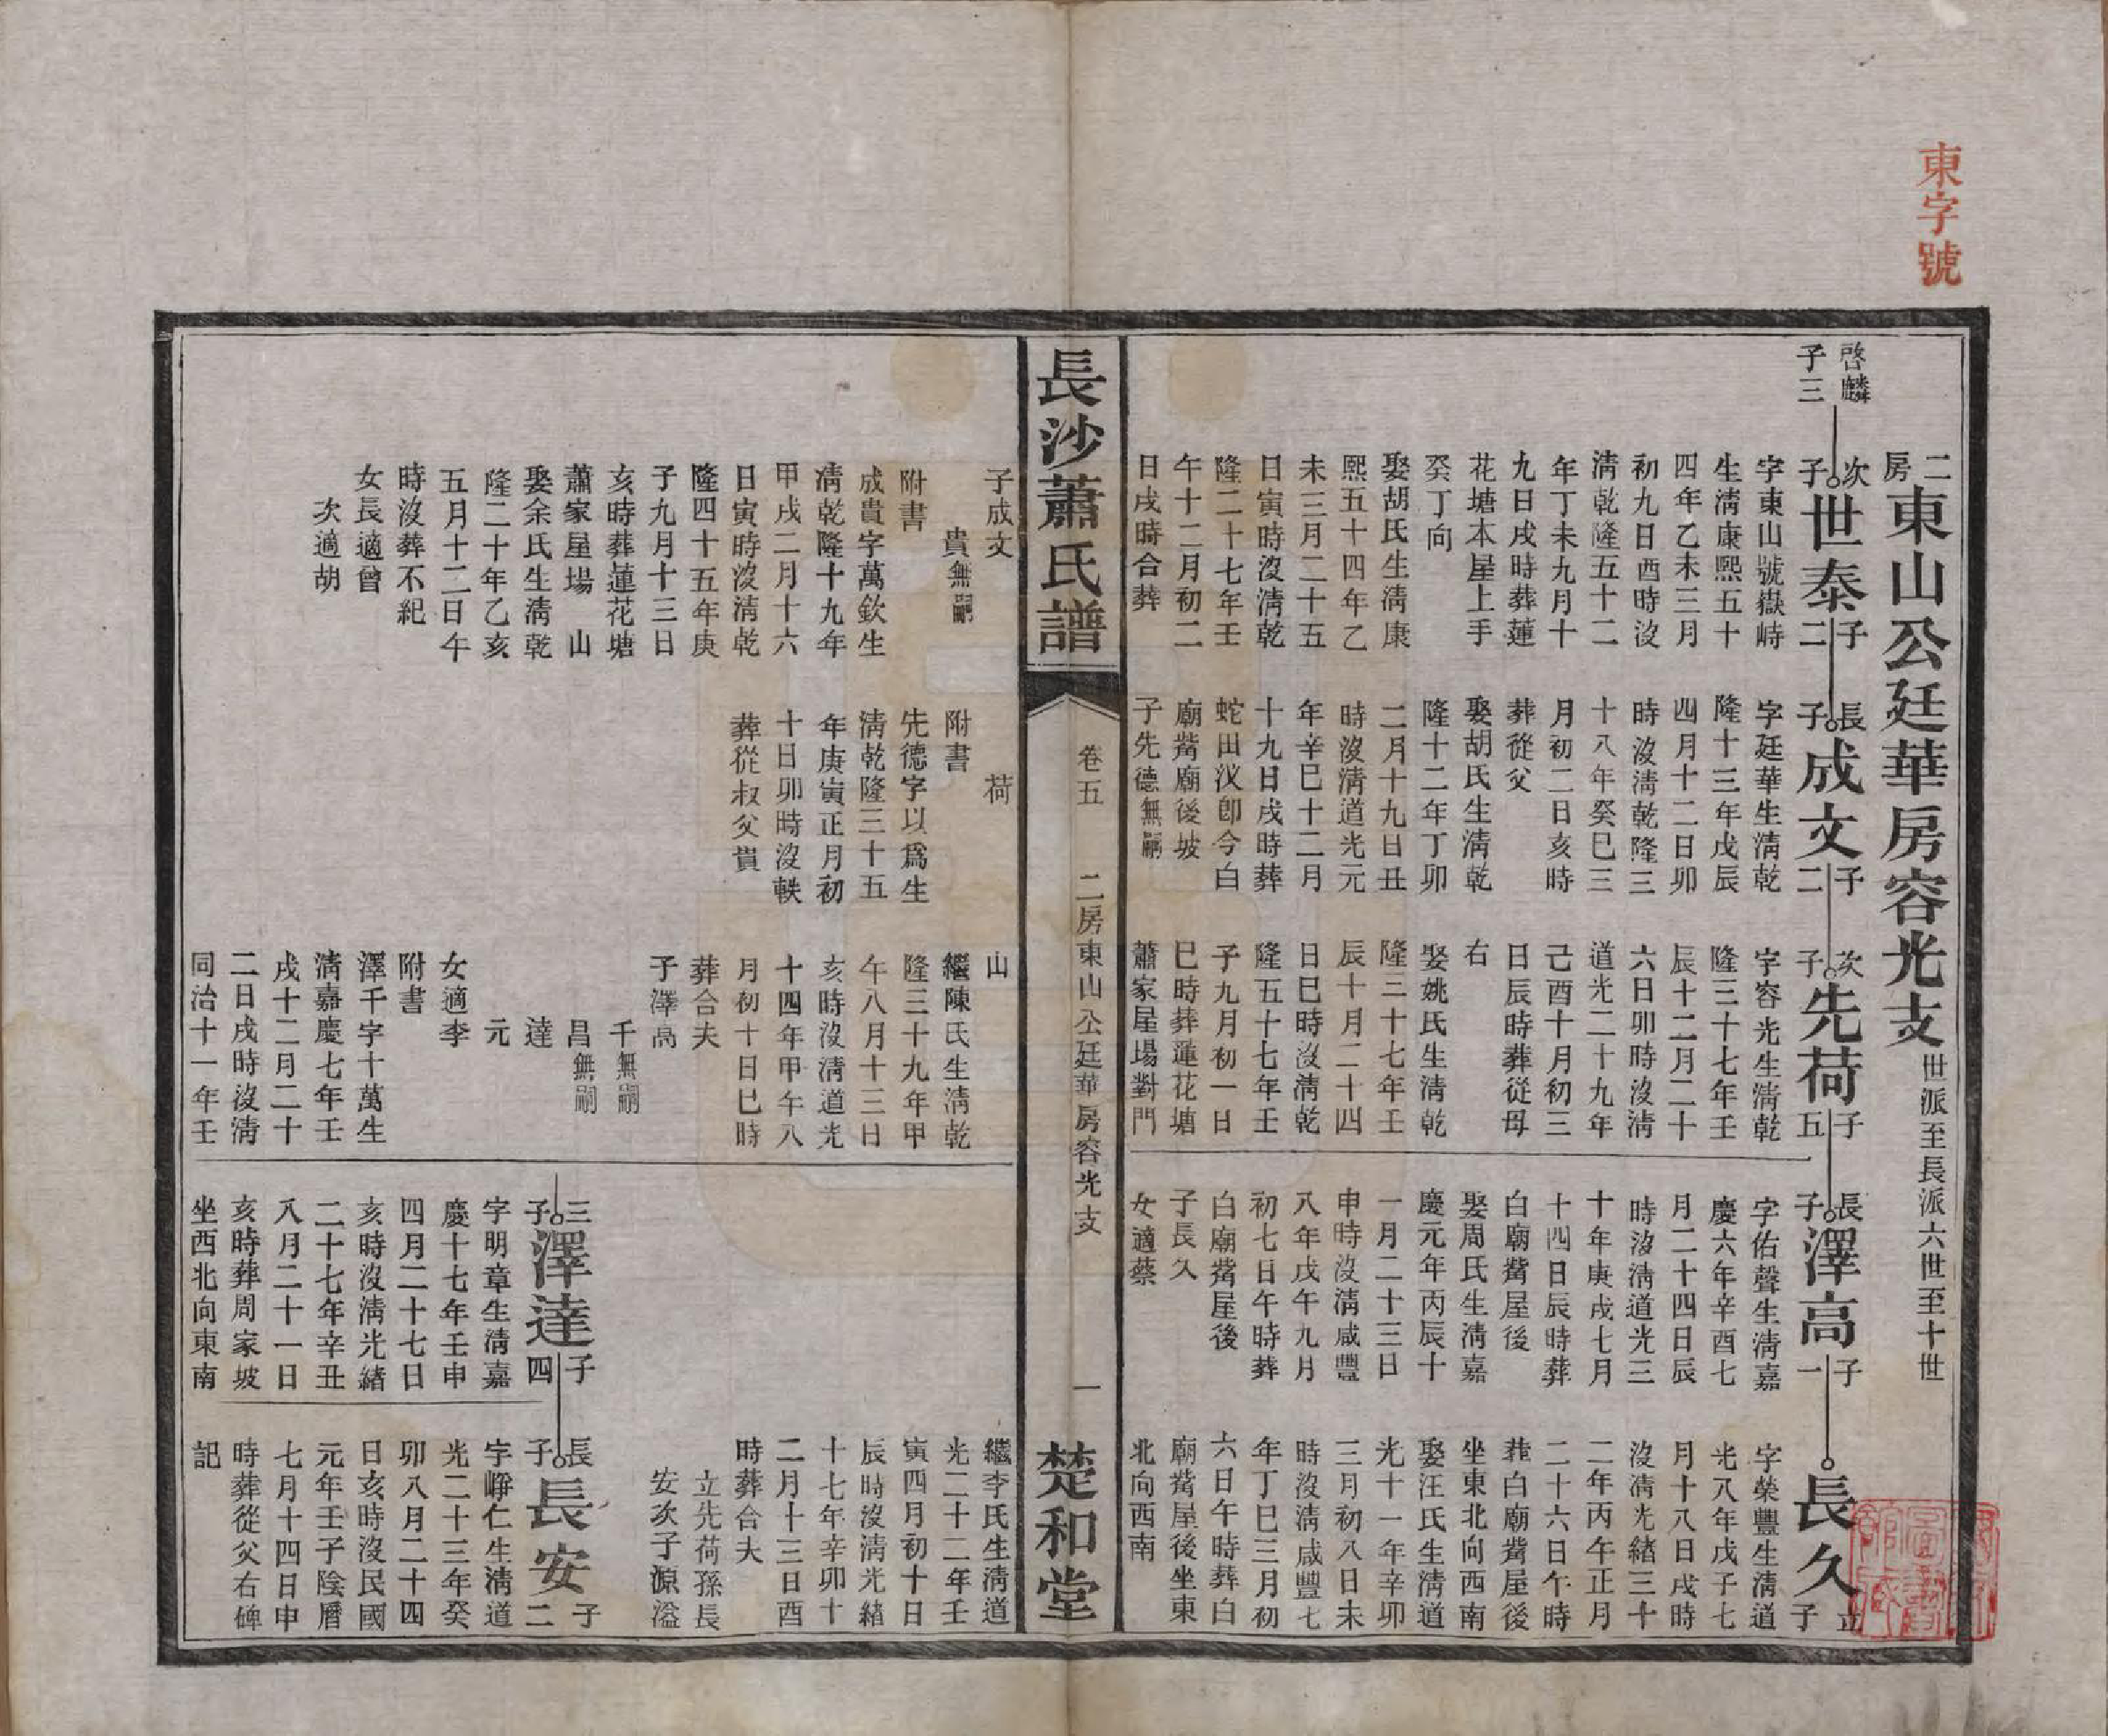 東字號
二房 東山公廷華房容光支 世派至長派六世至十世
啓麟子三
次子 世泰 子二
字東山號嶽峙
生淸康熙五十
四年乙未三月
初九日酉時沒
淸乾隆五十二
年丁未九月十
九日戌時葬蓮
花塘本屋上手
癸丁向
娶胡氏生淸康
熙五十四年乙
未三月二十五
日寅時沒淸乾
隆二十七年壬
午十二月初二
日戌時合葬
長子 成文 子二
字廷華生淸乾
隆十三年戊辰
四月十二日卯
時沒淸乾隆三
十八年癸巳三
月初二日亥時
葬從父
娶胡氏生淸乾
隆十二年丁卯
二月十九日丑
時沒淸道光元
年辛巳十二月
十九日戌時葬
蛇田汊卽今白
廟觜廟後坡
子先德無嗣
次子 先荷 子五
字容光生淸乾
隆三十七年壬
辰十二月二十
六日卯時沒淸
道光二十九年
己酉十月初三
日辰時葬從母
右
娶姚氏生淸乾
隆三十七年壬
辰十月二十四
日巳時沒淸乾
隆五十七年壬
子九月初一日
巳時葬蓮花塘
蕭家屋場對門
長子 澤高 子一
字佑聲生淸嘉
慶六年辛酉七
月二十四日辰
時沒淸道光三
十年庚戌七月
十四日辰時葬
白廟觜屋後
娶周氏生淸嘉
慶元年丙辰十
一月二十三日
申時沒淸咸豐
八年戊午九月
初七日午時葬
白廟觜屋後
子長久
女適蔡
長久 立子
字榮豐生淸道
光八年戊子七
月十八日戌時
沒淸光緖三十
二年丙午正月
二十六日午時
葬白廟觜屋後
坐東北向西南
娶汪氏生淸道
光十一年辛卯
三月初八日未
時沒淸咸豐七
年丁巳三月初
六日午時葬白
廟觜屋後坐東
北向西南
長沙蕭氏譜
卷五 二房東山公廷華房容光支 一
楚和堂
子成文
貴無嗣
附書
成貴字萬欽生
淸乾隆十九年
甲戌二月十六
日寅時沒淸乾
隆四十五年庚
子九月十三日
亥時葬蓮花塘
蕭家屋場 山
娶余氏生淸乾
隆二十年乙亥
五月十二日午
時沒葬不紀
女長適曾
次適胡
荷
附書
先德字以爲生
淸乾隆三十五
年庚寅正月初
十日卯時沒軼
葬從叔父貴
山
繼陳氏生淸乾
隆三十九年甲
午八月十三日
亥時沒淸道光
十四年甲午八
月初十日巳時
葬合夫
子澤高
千無嗣
昌無嗣
達
元
女適李
附書
澤千字十萬生
淸嘉慶七年壬
戌十二月二十
二日戌時沒淸
同治十一年壬
三子 澤達 子四
字明章生淸嘉
慶十七年壬申
四月二十七日
亥時沒淸光緖
二十七年辛丑
八月二十一日
亥時葬周家坡
坐西北向東南
繼李氏生淸道
光二十二年壬
寅四月初十日
辰時沒淸光緖
十七年辛卯十
二月十三日酉
時葬合夫
立先荷孫長
安次子源溢
長子 長安 子二
字崢仁生淸道
光二十三年癸
卯八月二十四
日亥時沒民國
元年壬子陰曆
七月十四日申
時葬從父右碑
記